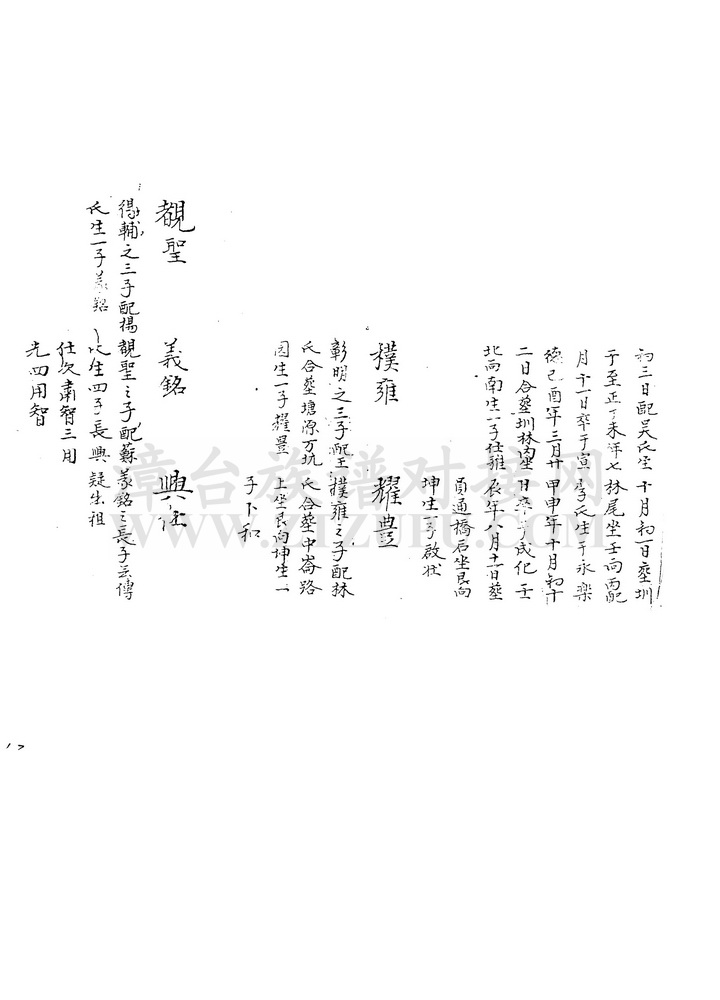 初三日配吴氏生 十月初一日塟圳
于至正丁未年七 林尾坐壬向丙配
月十一日卒于宣 李氏生于永樂
德己酉年三月廿 甲申年十月初十
二日合塟圳林内坐 日卒于成化壬
北向南生一子任雅 辰年八月十一日塟
員通橋后坐艮向
坤生一子啟壯
樸雍 耀豊
彰明之三子配王 樸雍之子配林
氏合塟塘源万坑 氏合塟中崙路
因生一子耀豊 上坐艮向坤生一
子卜和
觀聖 義銘 興
得輔之三子配楊 觀聖之子配蘇 義銘之長子云傳
氏生一子義銘 氏生四子長興 疑生祖
仕次肅智三用
光四用智
漳台族谱对接网